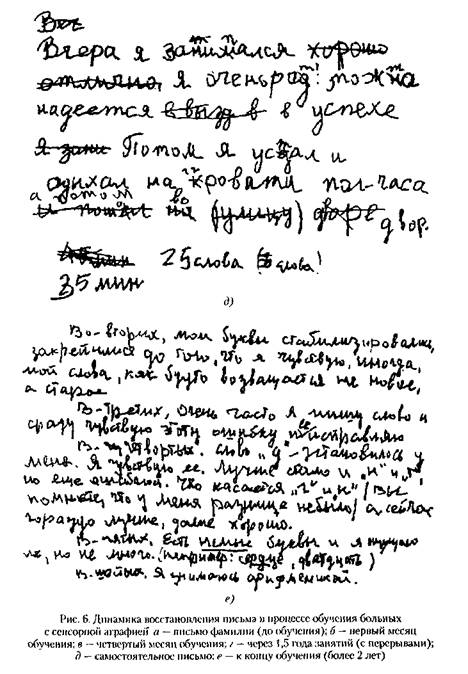 Вчера я занимался хорошо
отлично, я оченьрад! можна
надеется в в успехе
Потом я устал и
одыхал на кровати пол-часа
а потом во (улицу) дворе двор.
25 слова слова!
35 мин
д)
Во-вторих, мои буквы стабилизировались,
закрепился до того, что я чувствую, иногда,
мой слова, как будто возвращается не новое,
а старое
В-третих, очень часто я пишу слово и
сразу чувствую этоту ошибку и ее исправляю
В-четвортых. слово "д" - установилось у
меня. Я чувствую ее. Лучше стало и "н" и "т",
но еще ошибкой. Что касается "г" и к" / Вы
помните, что у меня разнице небыло/ а сейчас
гораздо лучше, даже хорошо.
В-пятых, Есть немые буквы и я
их, но не много. (например: сердце, двадцать)
В-шотых. Я анимаюсь арифметикой.
е)
Рис. 6. Динамика восстановления письма в процессе обучения больных
с сенсорной аграфией а — письмо фамилии (до обучения); б — первый месяц
обучения; в — четвертый месяц обучения; г — через 1,5 года занятий (с перерывами);
д — самостоятельное письмо; е — к концу обучения (более 2 лет)